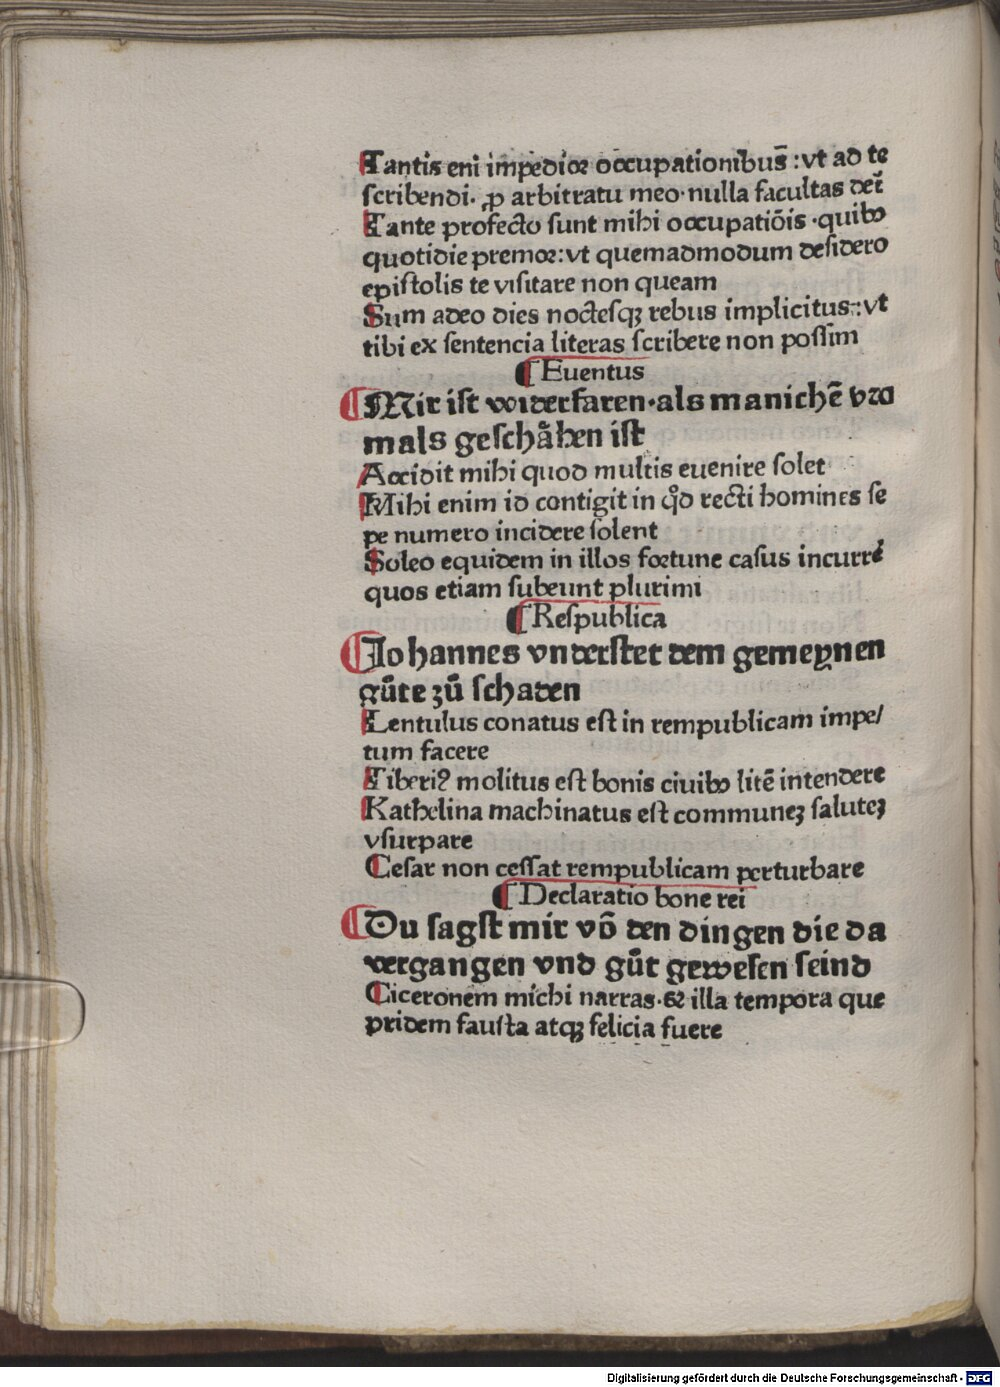 Tantis eni impedior occupationibus̄ : vt ad te
scribendi· ꝓ arbitratu meo· nulla facultas det̄
Tante profecto sunt mihi occupatiōis · quibꝰ
quotidie premor: vt quemadmodum desidero
epistolis te visitare non queam
Sum adeo dies noctesqꝫ rebus implicitus: vt
tibi ex sentencia literas scribere non possim
⸿ Euentus
⸿ Mir ist widerfaren·als manichē vꝛa
mals geschåhen ist
Accidit mihi quod multis euenire solet
Mihi enim id contigit in qͦd recti homines se
pe numero incidere solent
Soleo equidem in illos fortune casus incurrē
quos etiam subeunt plurimi
⸿ Respublica
⸿ Johannes vnderstet dem gemeynen
gūte zū schaden
Lentulus conatus est in rempublicam impe/
tum facere
Tiberiꝰ molitus est bonis ciuibꝰ litē intendere
Kathelina machinatus est communeꝫ saluteꝫ
vsurpare
Cesar non cessat rempublicam perturbare
⸿ Declaratio bone rei
⸿ Du sagst mir vō den dingen die da
vergangen vnd gūt gewesen seind
Ciceronem michi narras· ⁊ illa tempora que
pridem fausta atqꝫ felicia fuere
Digitalisierung gefördert durch die Deutsche Forschungsgemeinschaft - DFG